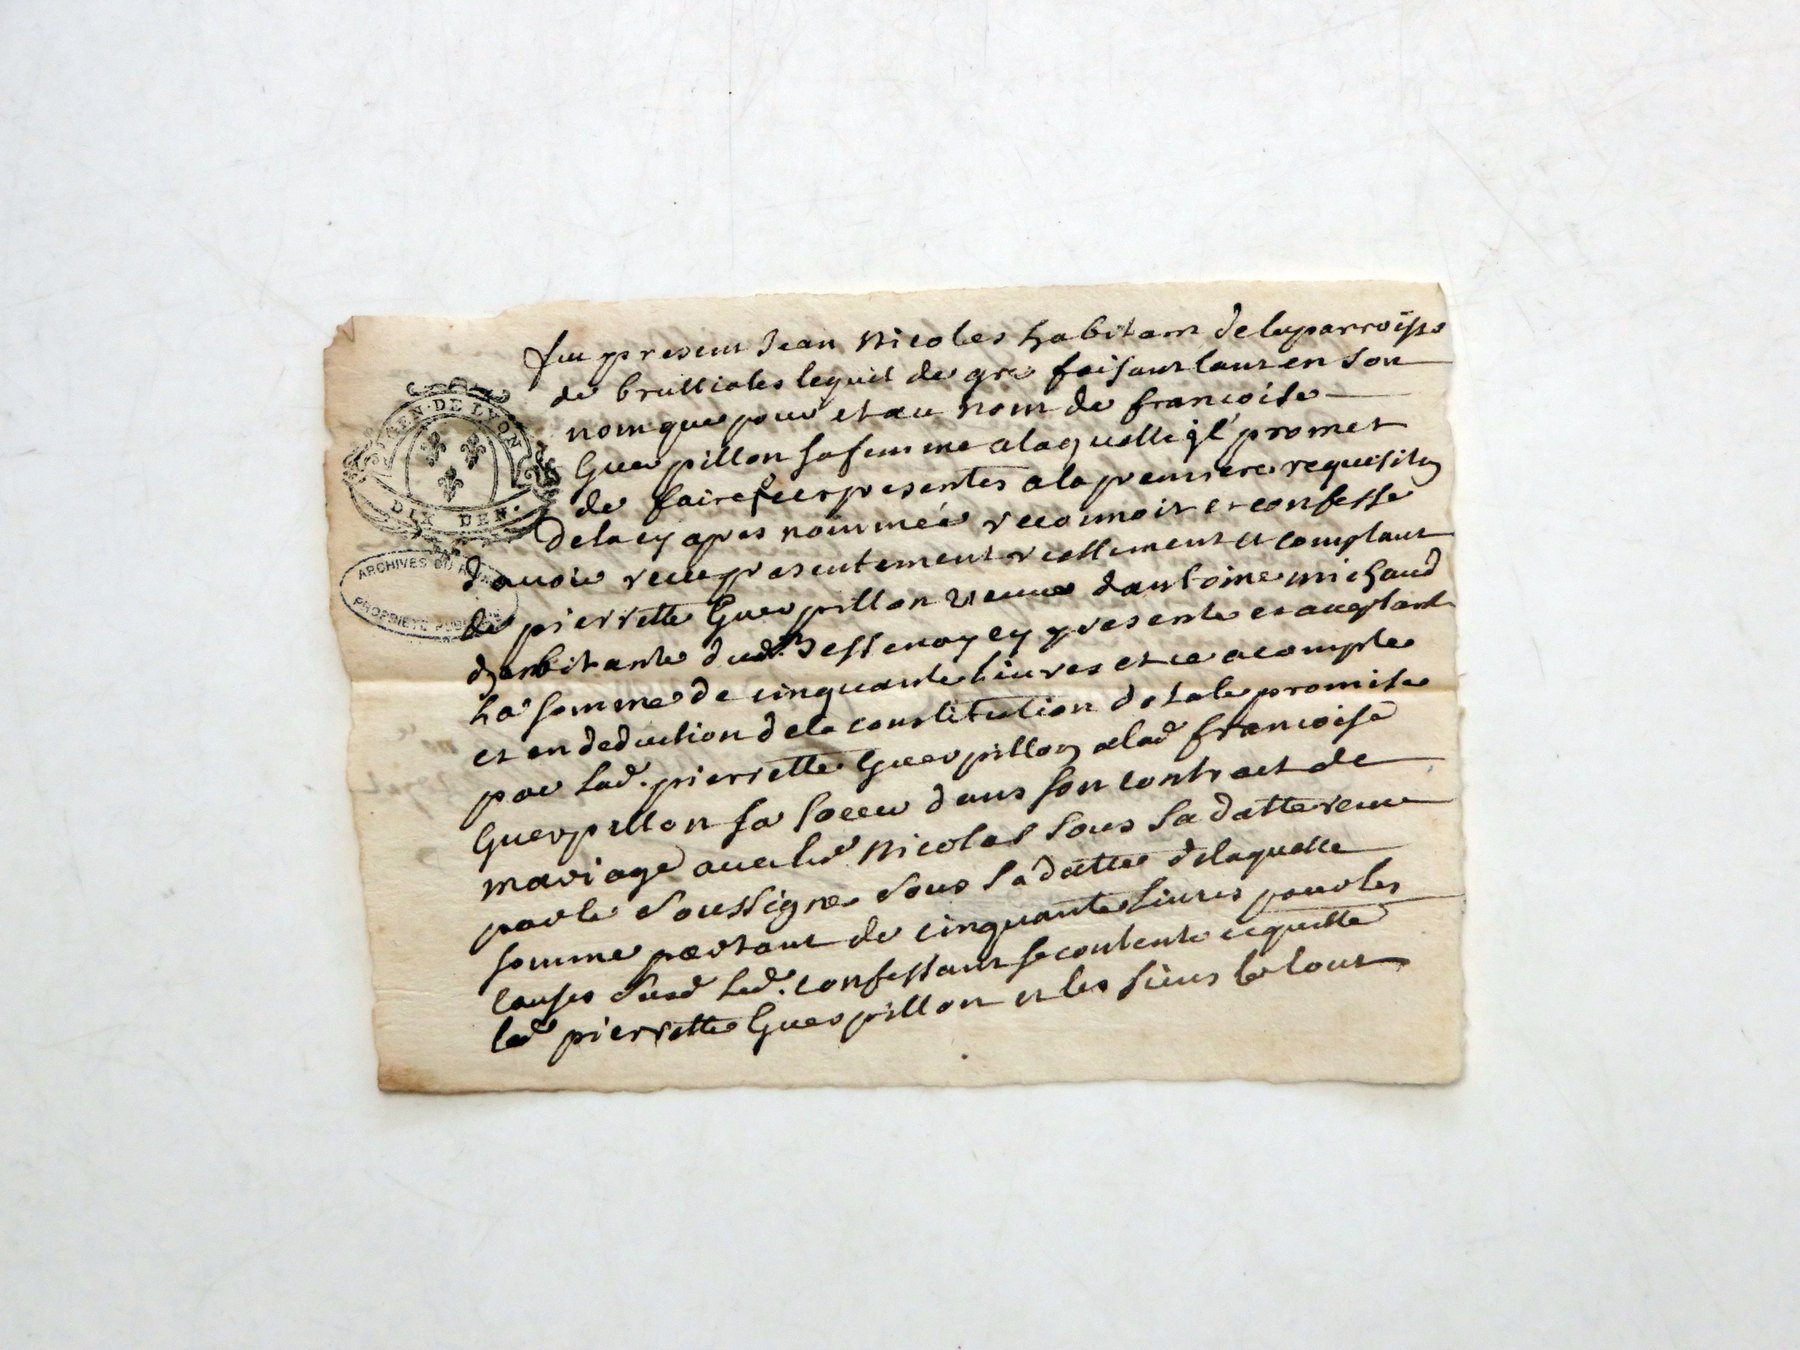 GEN. DE LYON
DIX DEN.
ARCHIVES DU
PROPRIÉTÉ PUBLIQUE
fut present Jean Nicolas habitant delaparroisse
de brullioles lequel de gré faisant tant en son
nom que pour et au nom de francoise
Guerpillon sa femme a laquelle il promet
de faire presentes a la premiere requisition
de la cy apres nommée reconnoit et confesse
davoir receu presentement reellement et comptant
de pierrette Guerpillon veuve dantoine michaud
habitante dud. Jessenay cy presente et acceptante
La somme de cinquante livres et ce acompte
et en deduction de la constitution dotale promise
par lad. pierrette Guerpillon a lad francoise
Guerpillon sa soeur dans son contract de
mariage avec led Nicolas sous sa datte receu
par le soussigné sous sa datte delaquelle
somme partant de cinquante livres pour les
causes susd led. confessant se contente et quitte
lad pierrette Guerpillon et les siens le tout